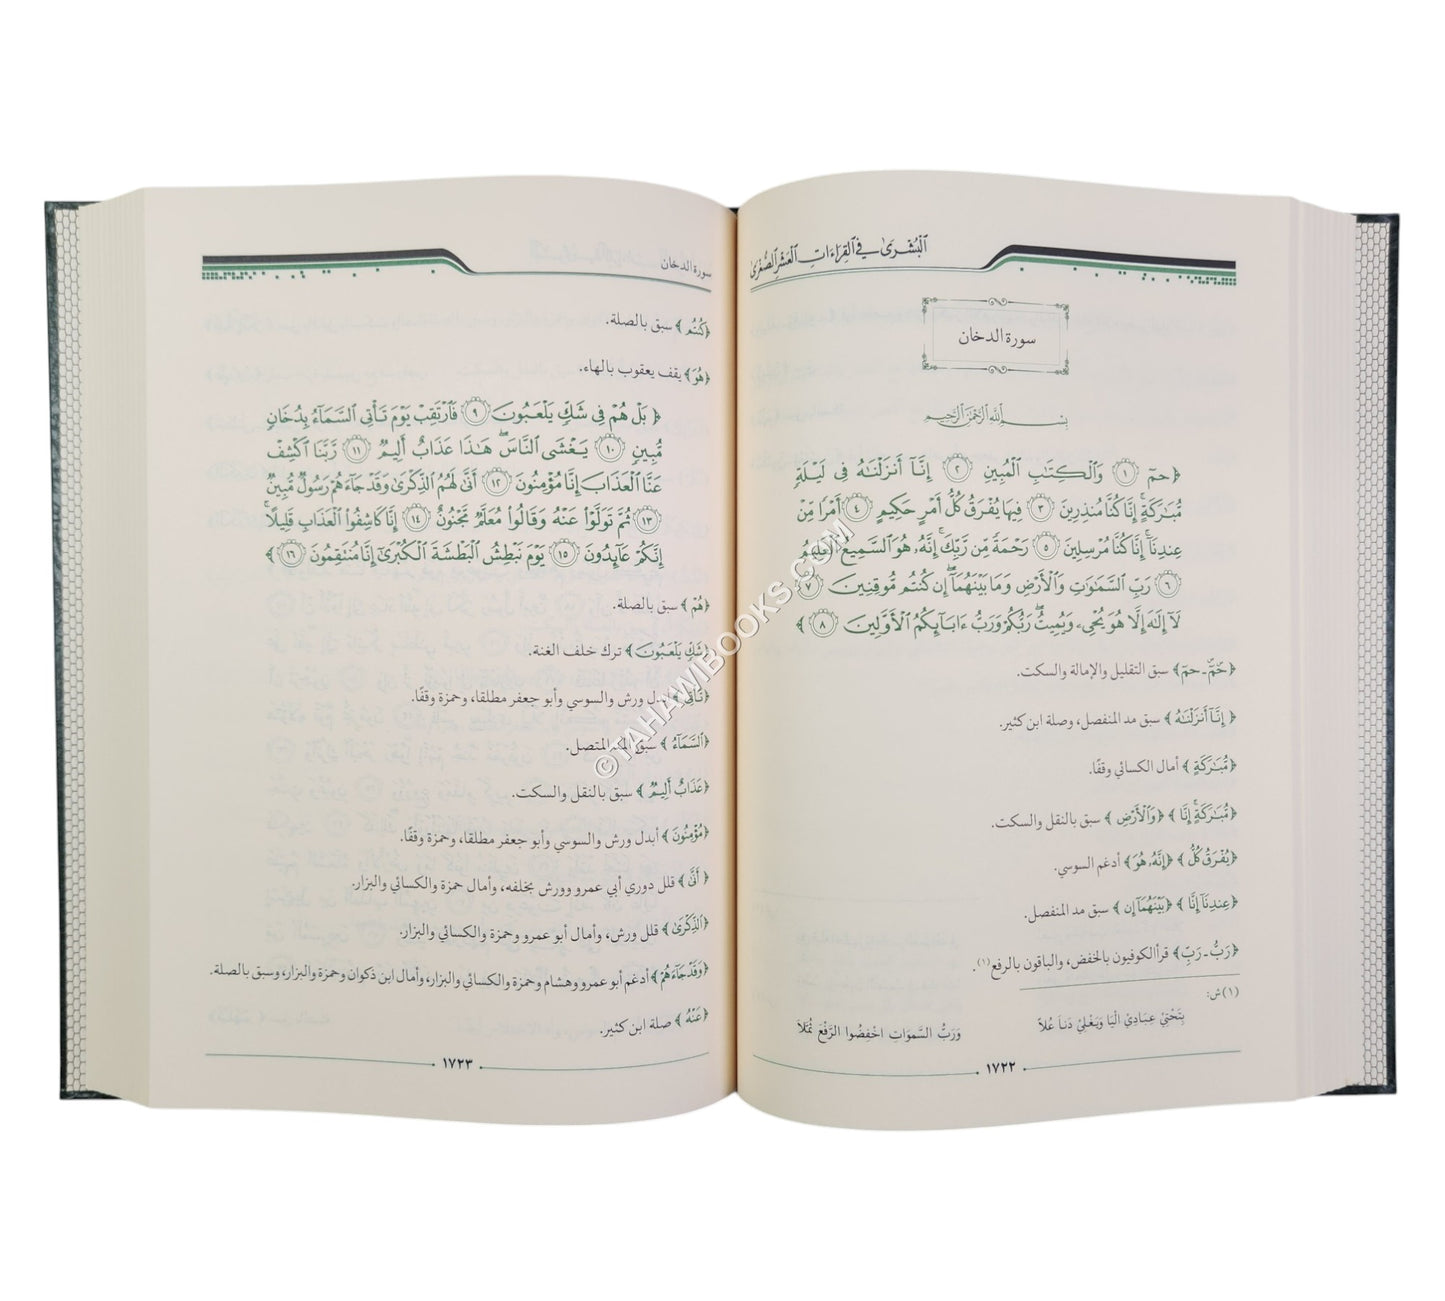 البُشْرَىٰ فِي القِرَاءَاتِ العَشْرِ الصُّغْرَىٰ
سورة الدخان
بِسْمِ ٱللَّهِ ٱلرَّحْمَٰنِ ٱلرَّحِيمِ
﴿ حمٓ ١ وَٱلْكِتَٰبِ ٱلْمُبِينِ ٢ إِنَّآ أَنزَلْنَٰهُ فِى لَيْلَةٍ
مُّبَٰرَكَةٍ ۚ إِنَّا كُنَّا مُنذِرِينَ ٣ فِيهَا يُفْرَقُ كُلُّ أَمْرٍ حَكِيمٍ ٤ أَمْرًا مِّنْ
عِندِنَآ ۚ إِنَّا كُنَّا مُرْسِلِينَ ٥ رَحْمَةً مِّن رَّبِّكَ ۚ إِنَّهُۥ هُوَ ٱلسَّمِيعُ ٱلْعَلِيمُ
٦ رَبِّ ٱلسَّمَٰوَٰتِ وَٱلْأَرْضِ وَمَا بَيْنَهُمَآ ۖ إِن كُنتُم مُّوقِنِينَ ٧
لَآ إِلَٰهَ إِلَّا هُوَ يُحْىِۦ وَيُمِيتُ ۖ رَبُّكُمْ وَرَبُّ ءَابَآئِكُمُ ٱلْأَوَّلِينَ ٨ ﴾
﴿حمٓ - حمٓ﴾ سبق التقليل والإمالة والسكت.
﴿إِنَّآ أَنزَلْنَٰهُ﴾ سبق مد المنفصل، وصلة ابن كثير.
﴿مُّبَٰرَكَةٍ﴾ أمال الكسائي وقفًا.
﴿مُّبَٰرَكَةٍ ۚ إِنَّا﴾ ﴿وَٱلْأَرْضِ﴾ سبق بالنقل والسكت.
﴿يُفْرَقُ كُلُّ﴾ ﴿إِنَّهُۥ هُوَ﴾ أدغم السوسي.
﴿عِندِنَآ إِنَّا﴾ ﴿بَيْنَهُمَآ إِن﴾ سبق مد المنفصل.
﴿رَبُّ - رَبِّ﴾ قرأ الكوفيون بالخفض، والباقون بالرفع(١).
(١) ش:
بِتَحْتِيْ عِبَادِيْ الْيَا وَيَغْلِيْ دَنَا عُلَا وَرَبُّ السَّمَوَاتِ اخْفِضُوا الرَّفْعَ ثُمَّلَا
١٧٢٢
سورة الدخان
﴿كُنتُم﴾ سبق بالصلة.
﴿هُوَ﴾ يقف يعقوب بالهاء.
﴿ بَلْ هُمْ فِى شَكٍّ يَلْعَبُونَ ٩ فَٱرْتَقِبْ يَوْمَ تَأْتِى ٱلسَّمَآءُ بِدُخَانٍ
مُّبِينٍ ١٠ يَغْشَى ٱلنَّاسَ ۖ هَٰذَا عَذَابٌ أَلِيمٌ ١١ رَّبَّنَا ٱكْشِفْ
عَنَّا ٱلْعَذَابَ إِنَّا مُؤْمِنُونَ ١٢ أَنَّىٰ لَهُمُ ٱلذِّكْرَىٰ وَقَدْ جَآءَهُمْ رَسُولٌ مُّبِينٌ
١٣ ثُمَّ تَوَلَّوْا۟ عَنْهُ وَقَالُوا۟ مُعَلَّمٌ مَّجْنُونٌ ١٤ إِنَّا كَاشِفُوا۟ ٱلْعَذَابِ قَلِيلًا ۚ
إِنَّكُمْ عَآئِدُونَ ١٥ يَوْمَ نَبْطِشُ ٱلْبَطْشَةَ ٱلْكُبْرَىٰٓ إِنَّا مُنتَقِمُونَ ١٦ ﴾
﴿هُمْ﴾ سبق بالصلة.
﴿شَكٍّ يَلْعَبُونَ﴾ ترك خلف الغنة.
﴿تَأْتِى﴾ أبدل ورش والسوسي وأبو جعفر مطلقا، وحمزة وقفًا.
﴿ٱلسَّمَآءُ﴾ سبق المد المتصل.
﴿عَذَابٌ أَلِيمٌ﴾ سبق بالنقل والسكت.
﴿مُؤْمِنُونَ﴾ أبدل ورش والسوسي وأبو جعفر مطلقا، وحمزة وقفًا.
﴿أَنَّىٰ﴾ قلل دوري أبي عمرو وورش بخلفه، وأمال حمزة والكسائي والبزار.
﴿ٱلذِّكْرَىٰ﴾ قلل ورش، وأمال أبو عمرو وحمزة والكسائي والبزار.
﴿وَقَدْ جَآءَهُمْ﴾ أدغم أبو عمرو وهشام وحمزة والكسائي والبزار، وأمال ابن ذكوان وحمزة والبزار، وسبق بالصلة.
﴿عَنْهُ﴾ صلة ابن كثير.
١٧٢٣
©TAHAWIBOOKS.COM